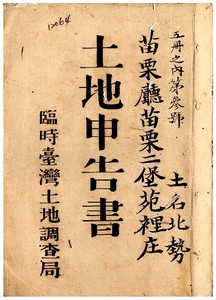 12064
五冊之內第參號
苗栗廳苗栗二堡苑裡庄
土名北勢
土地申告書
臨時臺灣土地調查局